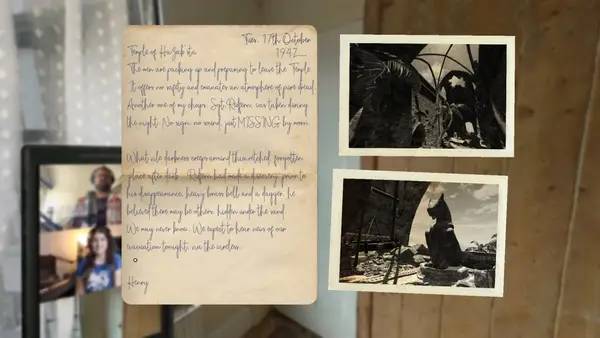 Tues. 17th October
1942
Temple of
The men are packing up and preparing to leave the Temple.
It offers no safety and emanates an atmosphere of pure dread.
Another one of my chaps, Sgt. Redfern, was taken during
the night. No sign, no sound, just MISSING by morn.
What vile darkness creeps around this wretched, forgotten
place after dark... Redfern had made a discovery, prior to
his disappearance, heavy brass bell, and a dagger, he
believed there may be others, hidden under the sand.
We may never know. We expect to hear news of our
evacuation tonight, via the wireless.
Henry